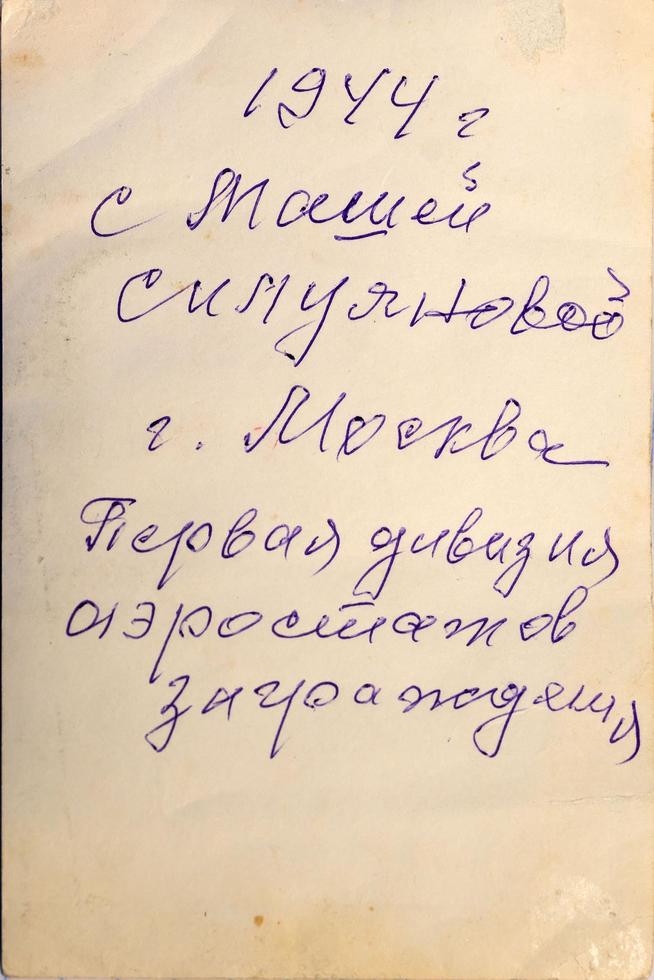 1944 г
с Машей
Симуяновой
г. Москва
Первая дивизия
аэростатов
заграждения